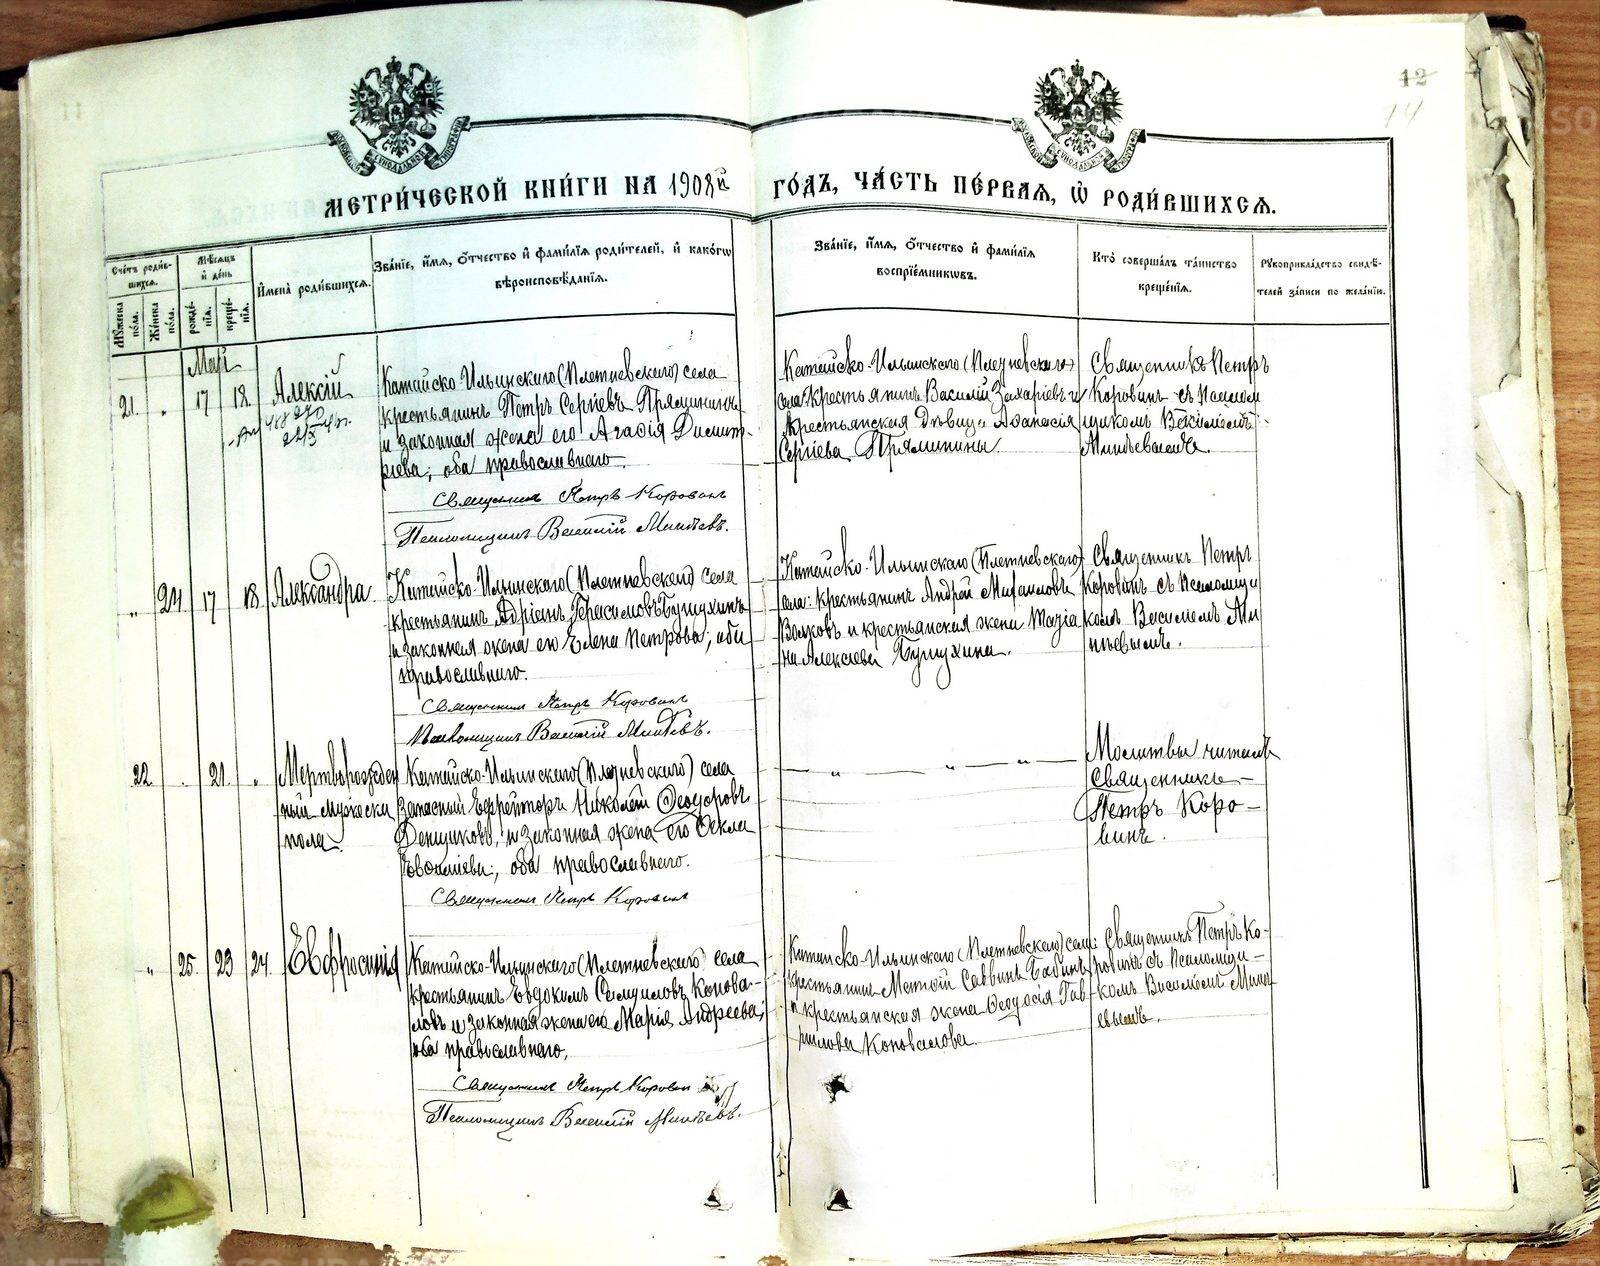 11
12
14
МЕТРИ́ЧЕСКОЙ КНИ́ГИ НА 1908й ГО́ДЪ, ЧА́СТЬ ПЕ́РВАЯ, Ѡ҆ РОДИ́ВШИХСЯ.
Сче́тъ роди́вшихся.
Му́жеска по́ла.
Же́нска по́ла.
Мѣ́сяцъ и҆ де́нь
рожде́нїя.
креще́нїя.
И҆мена̀ роди́вшихся.
Зва́нїе, и҆́мя, ѻ҆́тчество и҆ фами́лїя роди́телей, и҆ како́гѡ
вѣроисповѣ́данїя.
Зва́нїе, и҆́мя, ѻ҆́тчество и҆ фами́лїя
воспрїе́мникѡвъ.
Кто̀ соверша́лъ та́инство
креще́нїя.
Рукоприкла́дство свидѣ́-
телей за́писи по жела́нїю.
Май
21. " 17 18. Алексій
Катайско-Ильинскаго (Плетневскаго) села
крестьянинъ Петръ Сергіевъ Прямининъ
и законная жена его Агафія Димит-
ріева, оба православнаго.
Священникъ Петръ Коровинъ
Псаломщикъ Василій Минѣевъ.
Катайско-Ильинскаго (Плетневскаго)
села: Крестьянинъ Василій Захаріевъ и
крестьянская дѣвица Афанасія
Сергіева Прямины.
Священникъ Петръ
Коровинъ съ Псалом-
щикомъ Василіемъ
Минѣевымъ.
" 24 17 18 Александра
Катайско-Ильинскаго (Плетневскаго) села
крестьянинъ Адріанъ Герасимовъ Бутухинъ
и законная жена его Елена Петрова; оба
православнаго.
Священникъ Петръ Коровинъ
Псаломщикъ Василій Минѣевъ.
Катайско-Ильинскаго (Плетневскаго)
села: крестьянинъ Андрей Михаиловъ
Волковъ и крестьянская жена Марiа-
на Алексіева Бутухина.
Священникъ Петръ
Коровинъ съ Псаломщи
комъ Василіемъ Ми
нѣевымъ.
22. . 21. " Мертворожден
ный мужеска
пола.
Катайско-Ильинскаго (Плетневскаго) села
Запасный Ефрейторъ Николай Ѳеодоровъ
Денщиковъ, и законная жена его Ѳекла
Евсиміева; оба православнаго.
Священникъ Петръ Коровинъ
" " "
Молитвы читалъ
Священникъ
Петръ Коро-
винъ.
" 25. 23 24. Евфросинія
Катайско-Ильинскаго (Плетневскаго) села
крестьянинъ Евдокимъ Самуиловъ Конова-
ловъ и законная жена его Марія Андреева;
оба православнаго.
Священникъ Петръ Коровин
Псаломщикъ Василій Минѣевъ.
Катайско-Ильинскаго (Плетневскаго) села:
крестьянинъ Матѳій Саввинъ Бабинъ
и крестьянская жена Ѳеодосія Гав-
рилова Коновалова.
Священникъ Петръ Ко-
ровинъ съ Псаломщи-
комъ Василіемъ Минѣ-
евымъ.